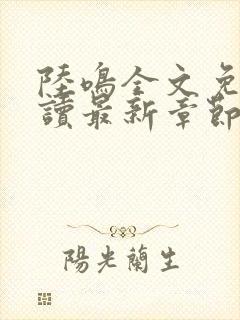 陸鳴全文免
讀最新章節
陽光蘭生